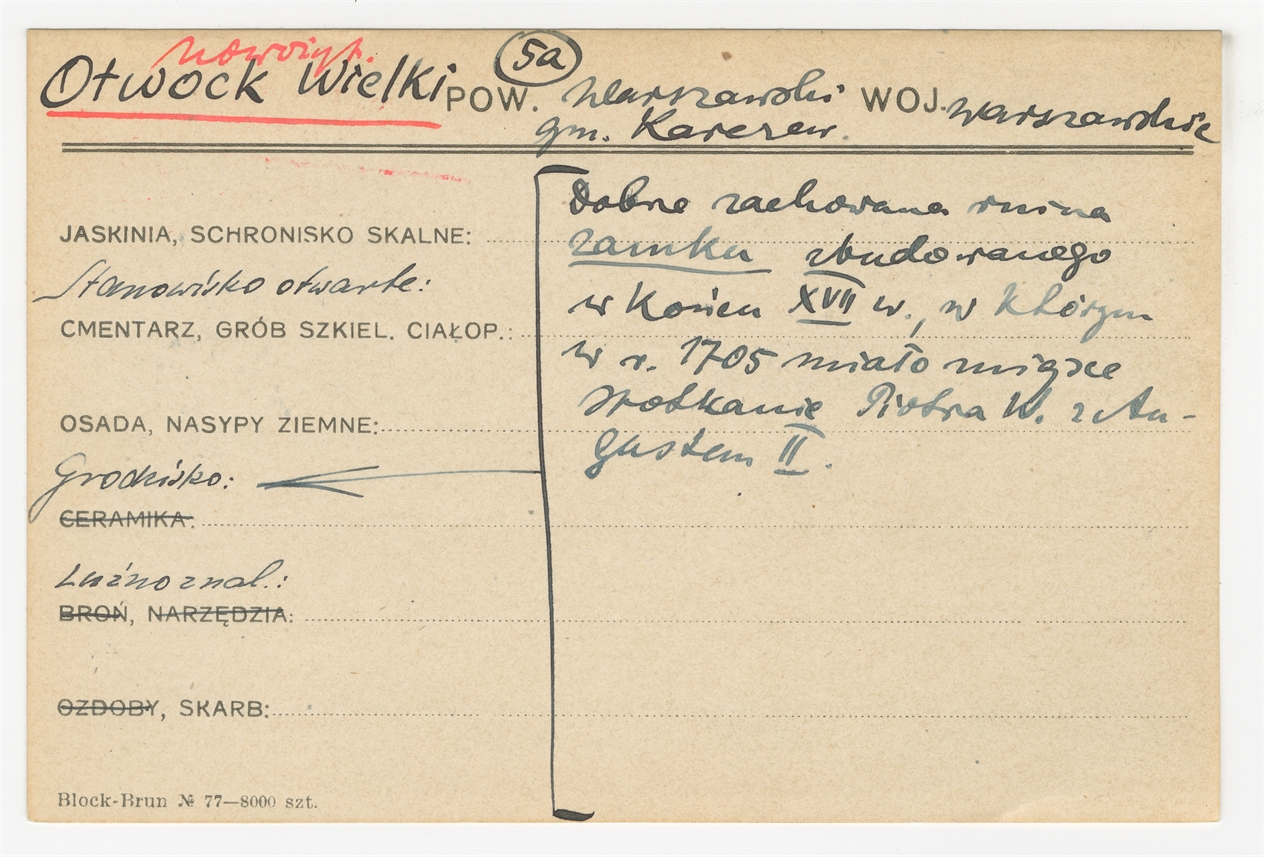 nowożyt.
5a
Otwock Wielki POW. Warszawski WOJ. warszawskie
gm. Karczew.
Dobrze zachowana ruina
JASKINIA, SCHRONISKO SKALNE:
zamku zbudowanego
Stanowisko otwarte:
w końcu XVII w., w którym
CMENTARZ, GRÓB SZKIEL. CIAŁOP.:
w r. 1705 miało miejsce
spotkanie Piotra W. z Au-
OSADA, NASYPY ZIEMNE:
gustem II.
Grodzisko:
CERAMIKA:
Luźno znal.:
BROŃ, NARZĘDZIA:
OZDOBY, SKARB:
Block-Brun № 77—8000 szt.